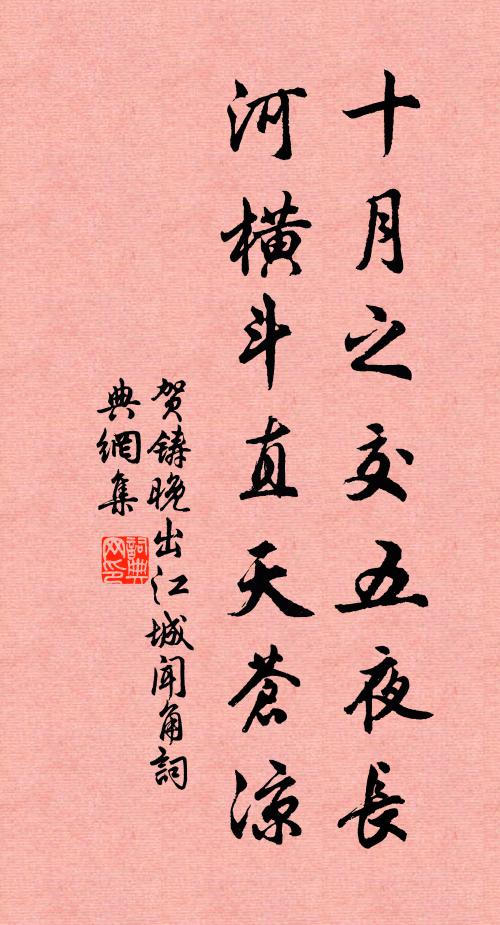 十月之交五夜長
河橫斗直天蒼涼
賀鑄晚出江城聞角詞
典網集
詞典
网印